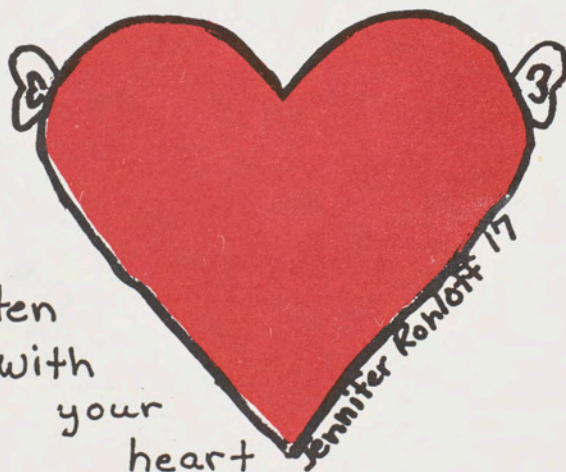 ten
with
your
heart
Jennifer Rohloff 17